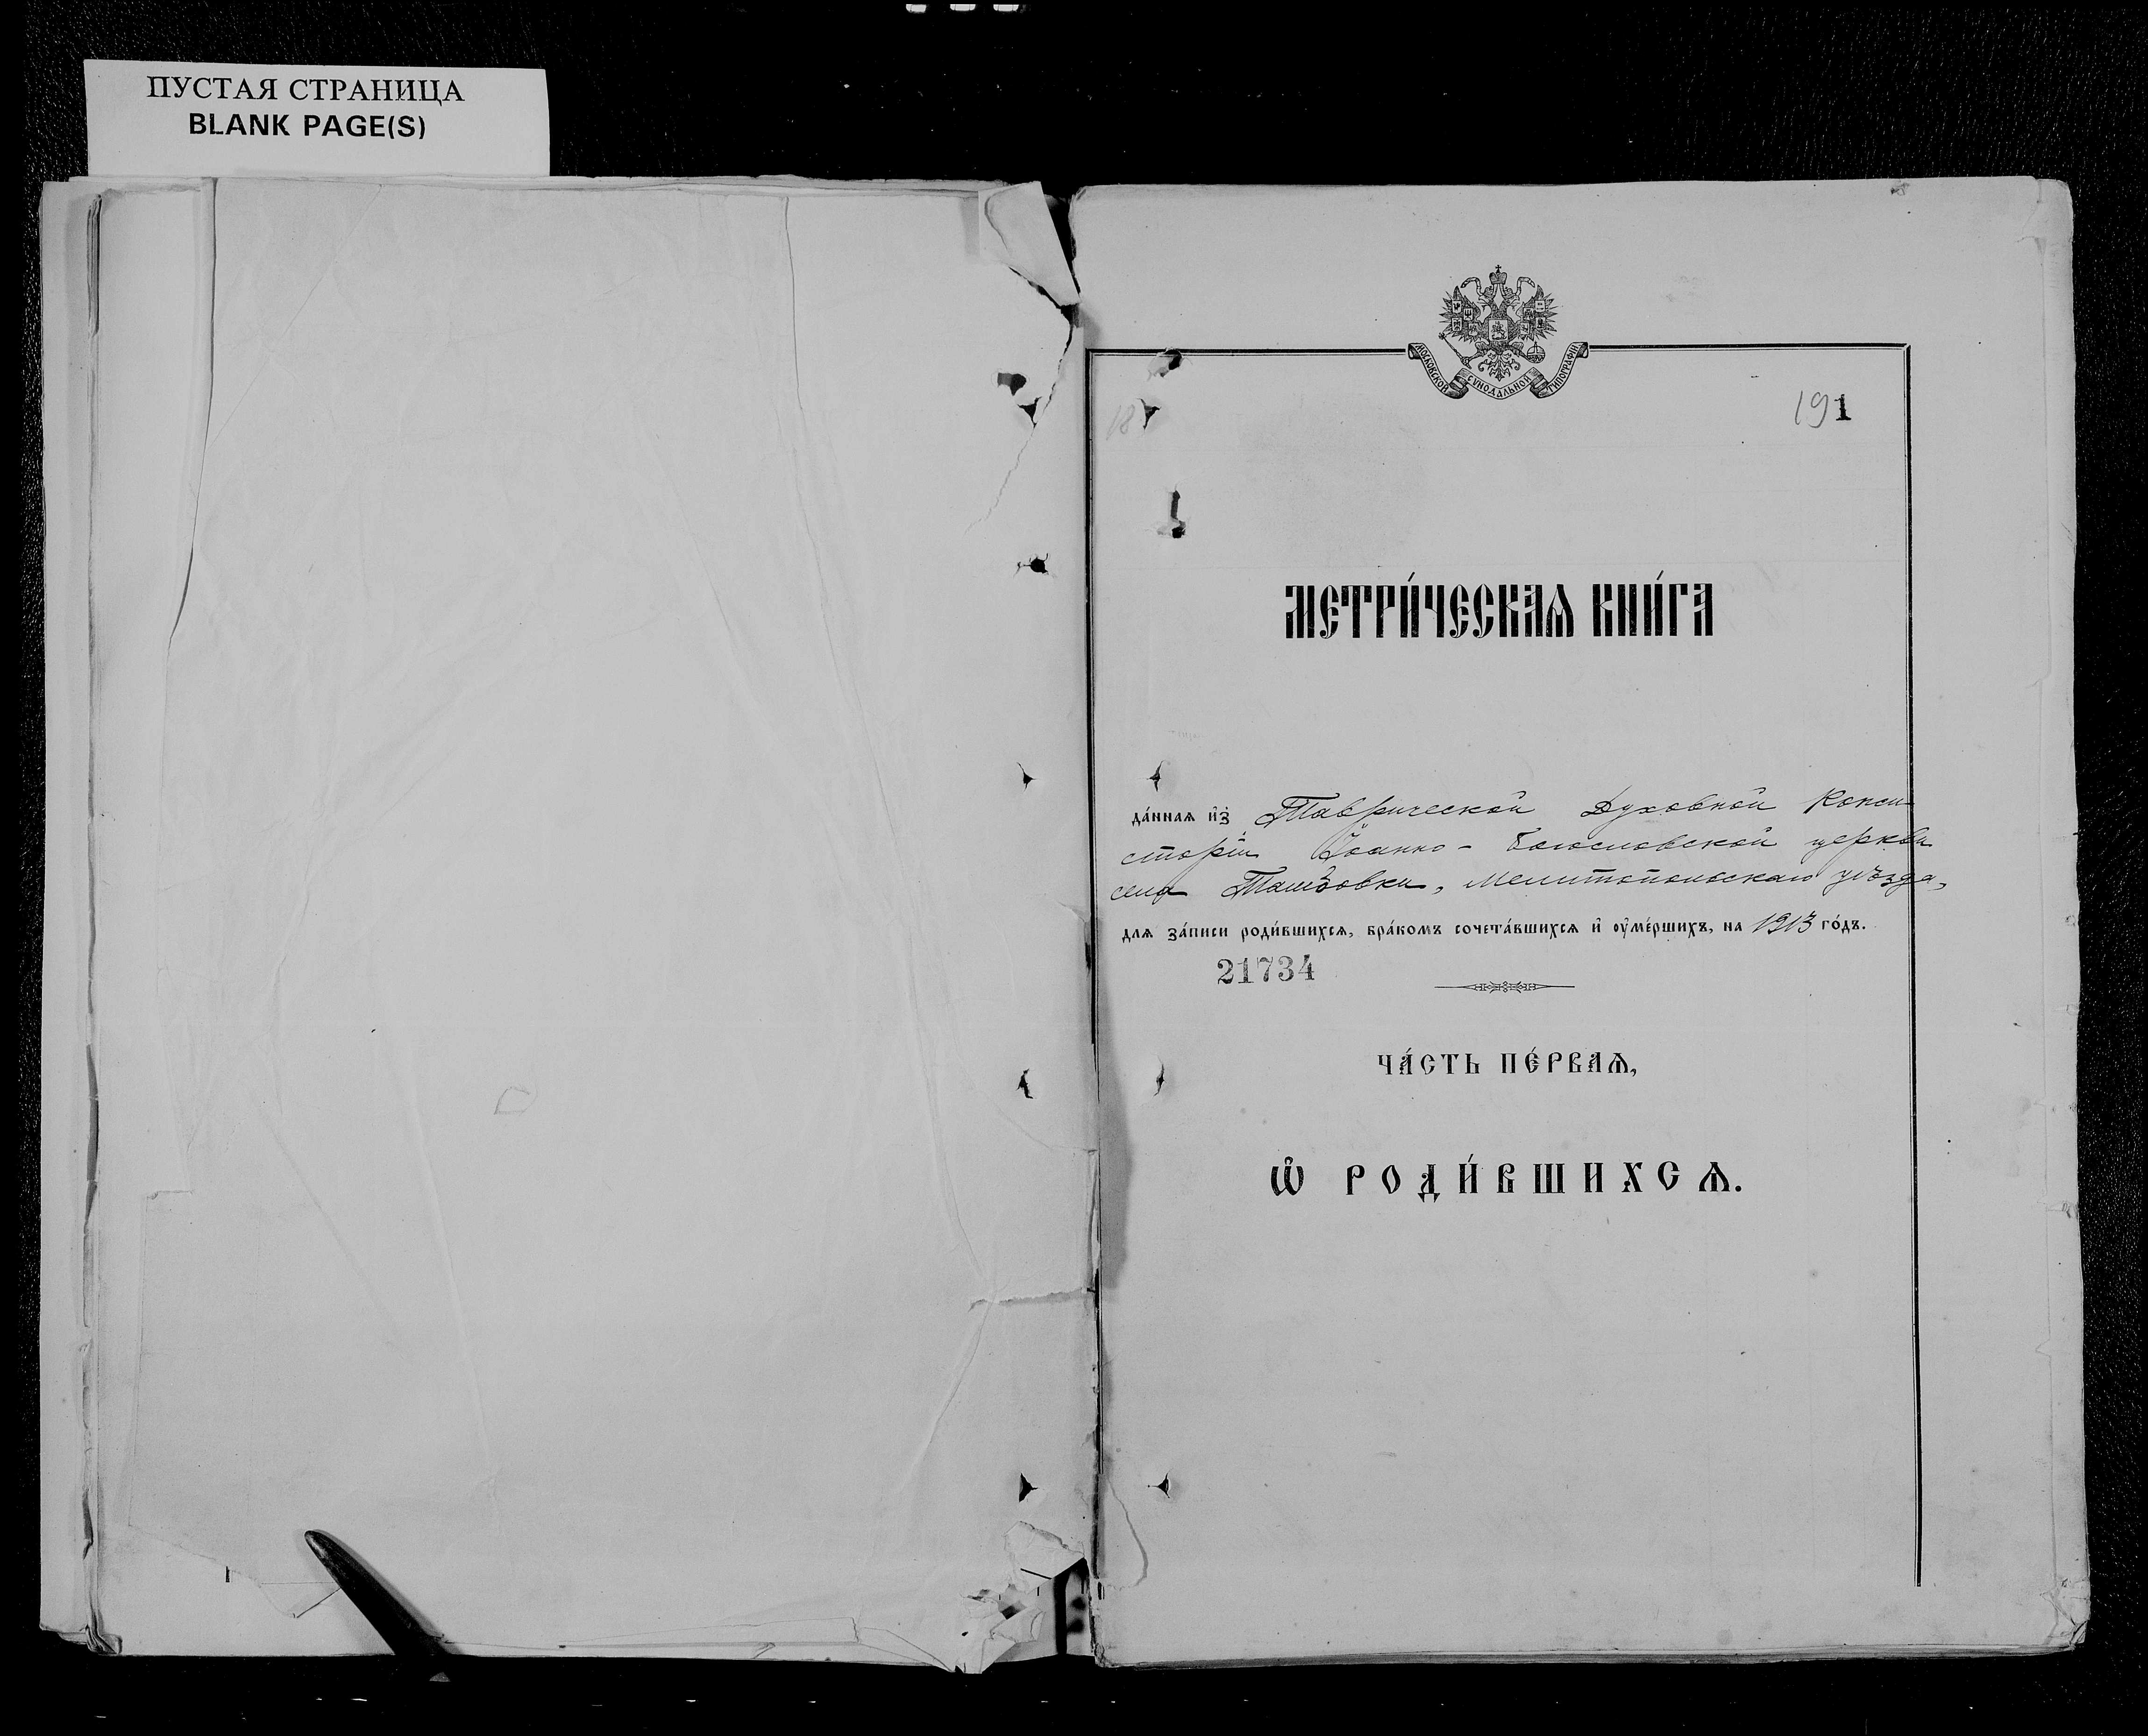 ПУСТАЯ СТРАНИЦА
BLANK PAGE(S)
МОСКОВСКОЙ СѴНОДАЛЬНОЙ ТИПОГРАФІИ
191
18
МЕТРИ́ЧЕСКАѦ КНИ́ГА
да́ннаѧ и҆з̾ Таврической Духовной Конси
сторіи Іоанно-Богословской церкви
села Ташовки, Мелитопольскаго уѣзда,
длѧ за́писи роди́вшихсѧ, бра́комъ сочета́вшихсѧ и҆ ᲂу҆ме́ршихъ, на 1913 го́дъ.
21734
ЧА́СТЬ ПЕ́РВАѦ,
Ѡ҆ РОДИ́ВШИХСѦ.